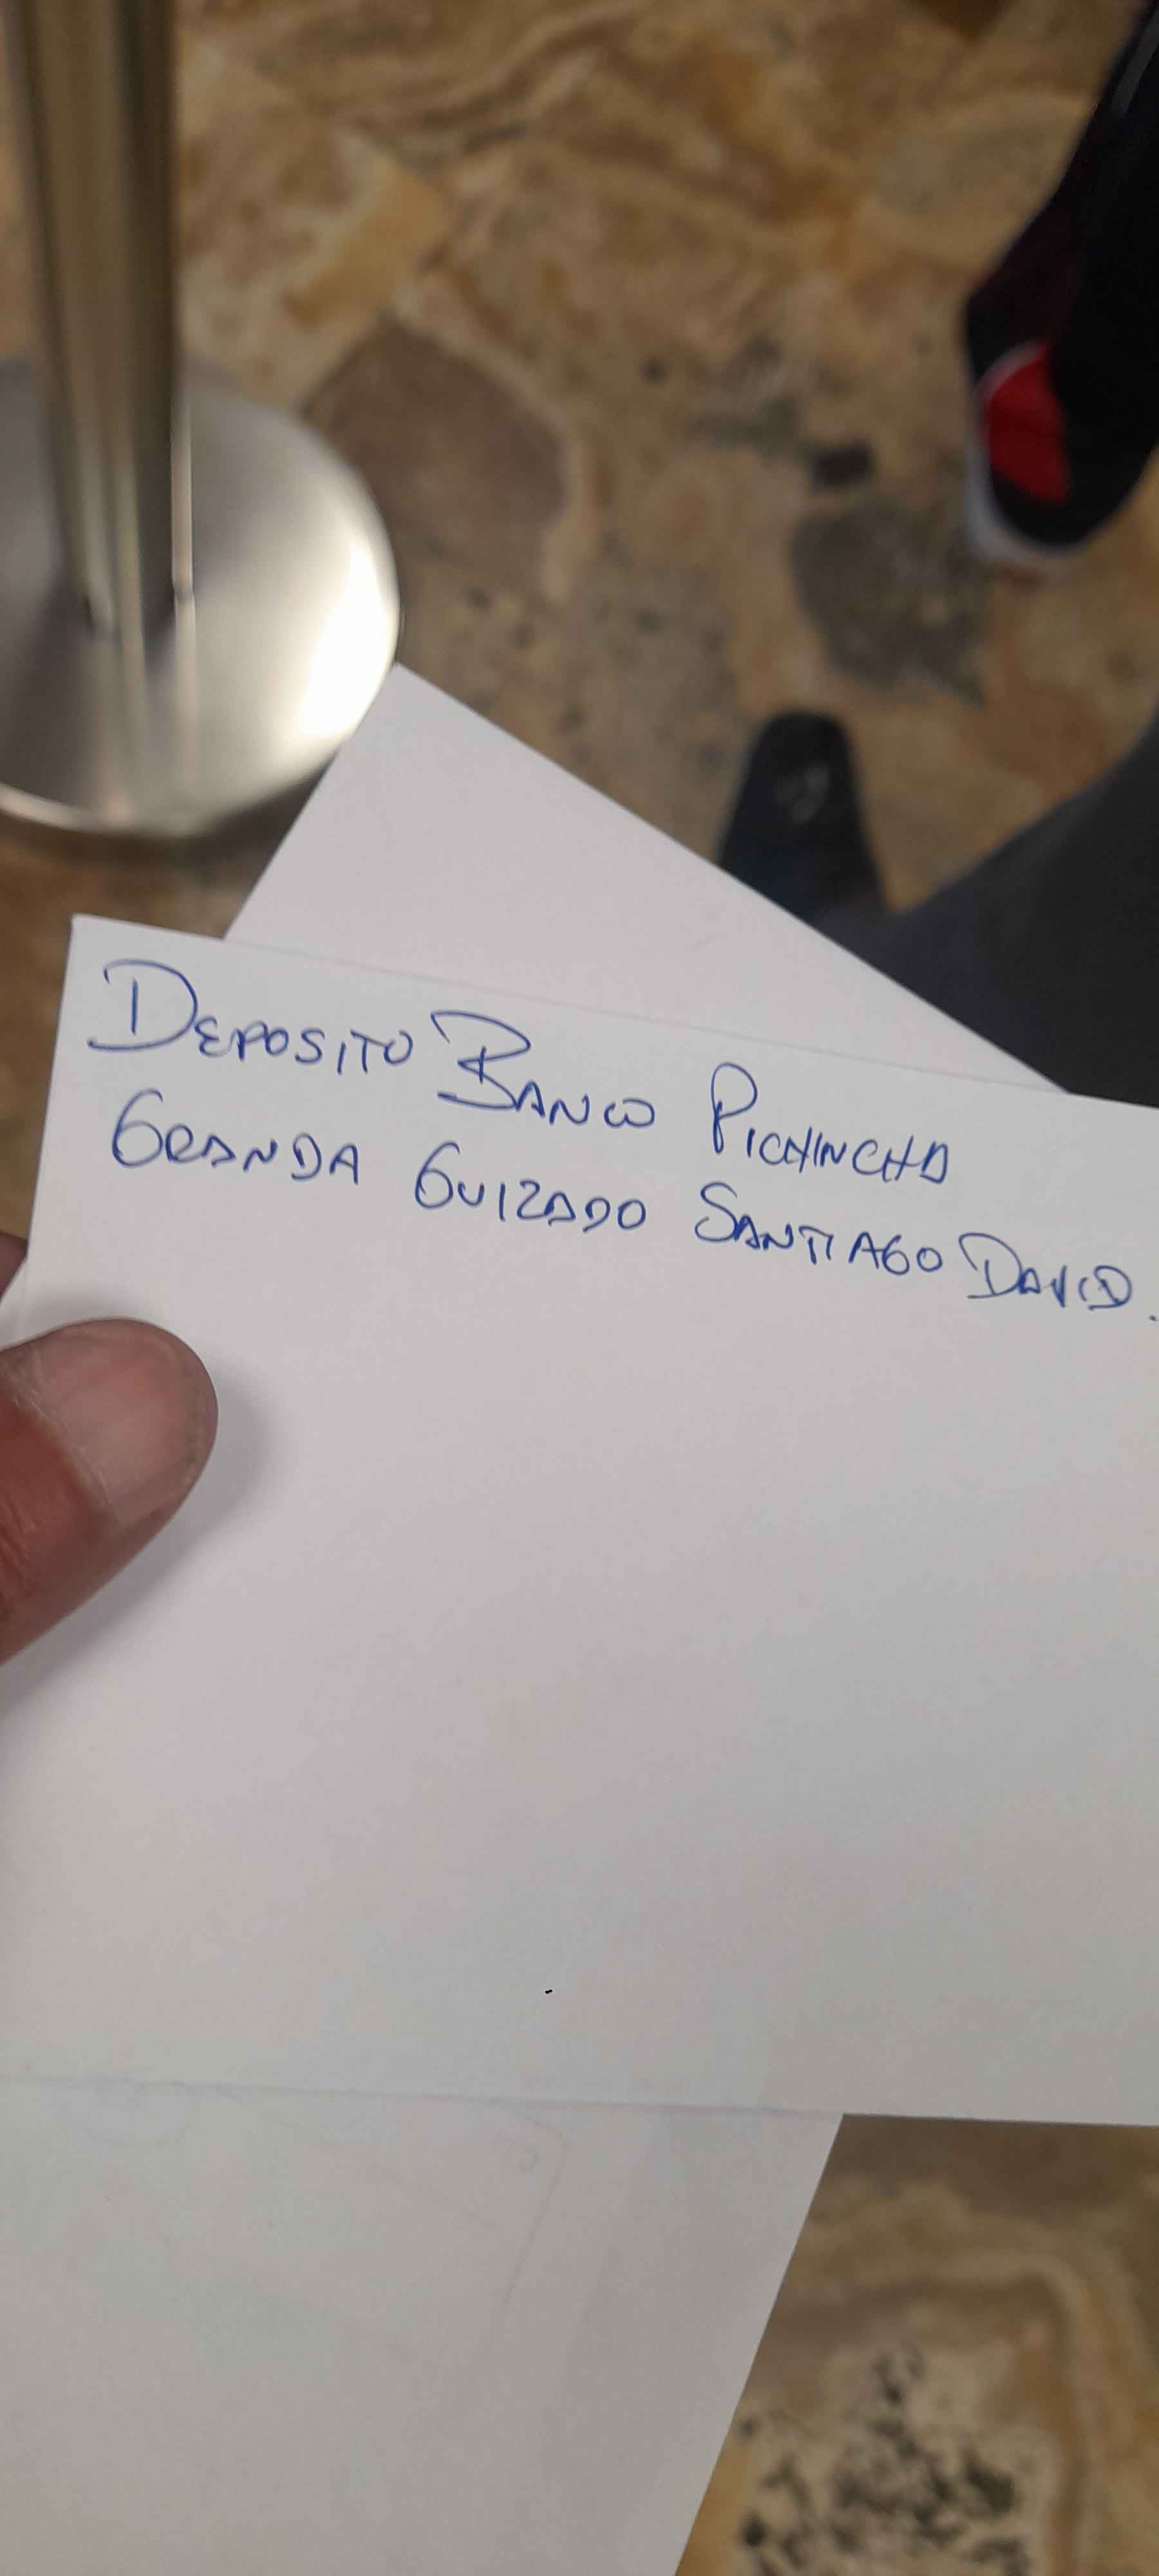 DEPOSITO BANCO PICHINCHA
GRANDA GUIZADO SANTIAGO DAVID.